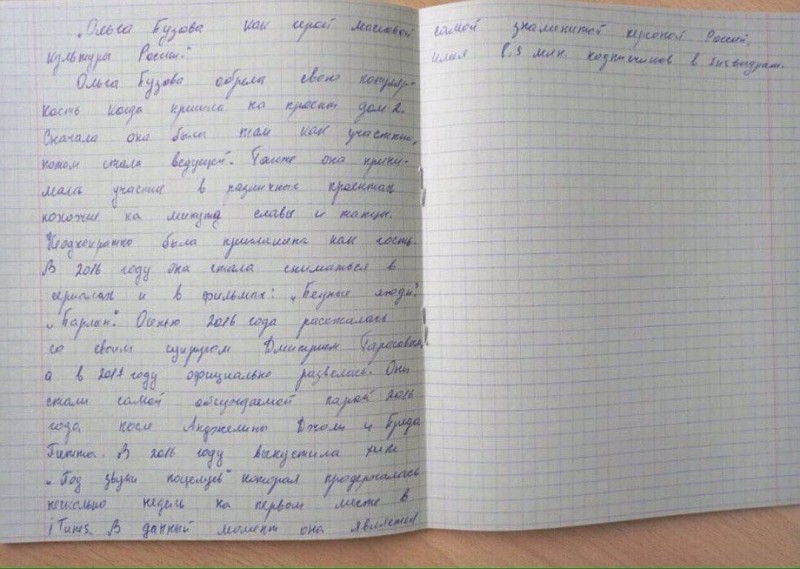 „Ольга Бузова как герой массовой
культуры России."
Ольга Бузова обрела свою популяр-
ность когда пришла на проект дом 2.
Сначала она была там как участник,
потом стала ведущей. Также она прини-
мала участие в различных проектах
похожие на минута славы и танцы.
Неоднократно была приглашена как гость.
В 2016 году она стала сниматься в
сериалах и в фильмах: „Бедные люди".
„Бармен". Осенью 2016 года рассталась
со своим супругом Дмитрием Тарасовым,
а в 2017 году официально развелись. Они
стали самой обсуждаемой парой 2016
года после Анджелины Джоли и Бреда
Питта. В 2016 году выпустила хит
„Под звуки поцелуев" которая продержалась
несколько недель на первом месте в
iTunes. В данный момент она является
самой знаменитой персоной России,
имея 8,5 млн. подписчиков в instagram.